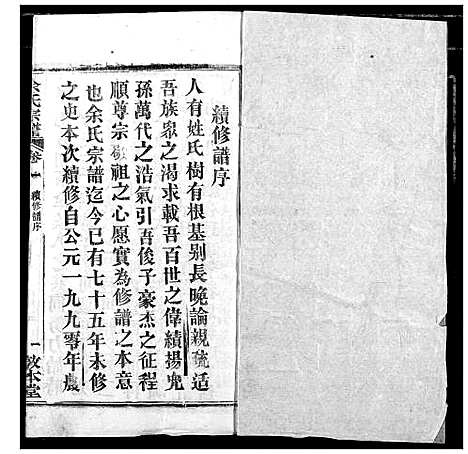 續修譜序
人有姓氏樹有根基别長晚論親疏适
吾族衆之渴求載吾百世之偉績揚兜
孫萬代之浩氣引吾俊子豪杰之征程
順尊宗敬祖之心愿實為修譜之本意
也余氏宗譜迄今已有七十五年未修
之史本次續修自公元一九九零年農
余氏宗譜
卷一
續修譜序
一
敦本堂